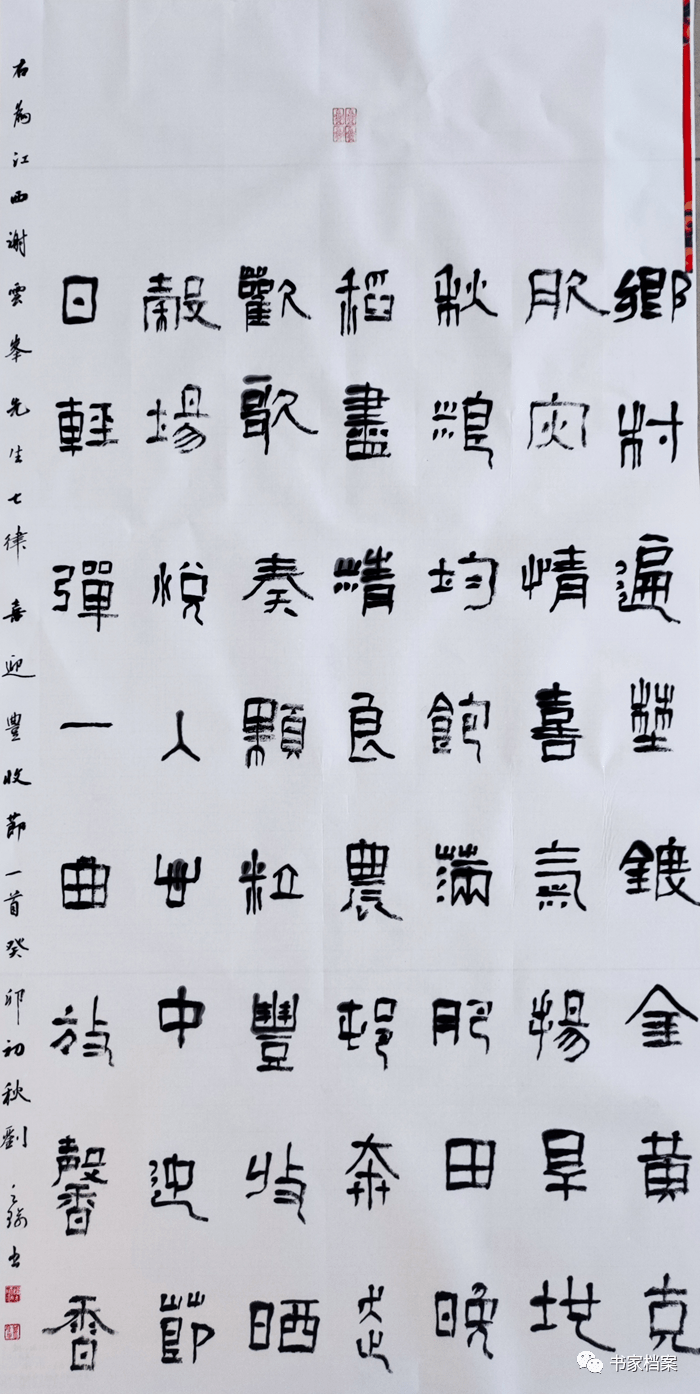 鄉村遍埜鍍金黃克
服灾情喜氣揚旱地
秋粮均飽滿肥田晚
稻盡精良農邨奔走
歡歌奏顆粒豐收晒
穀場悅人世中迎節
日輕彈一曲放馨香
右為江西謝雲峯先生七律喜迎豐收節一首癸卯初秋劉書
书家档案